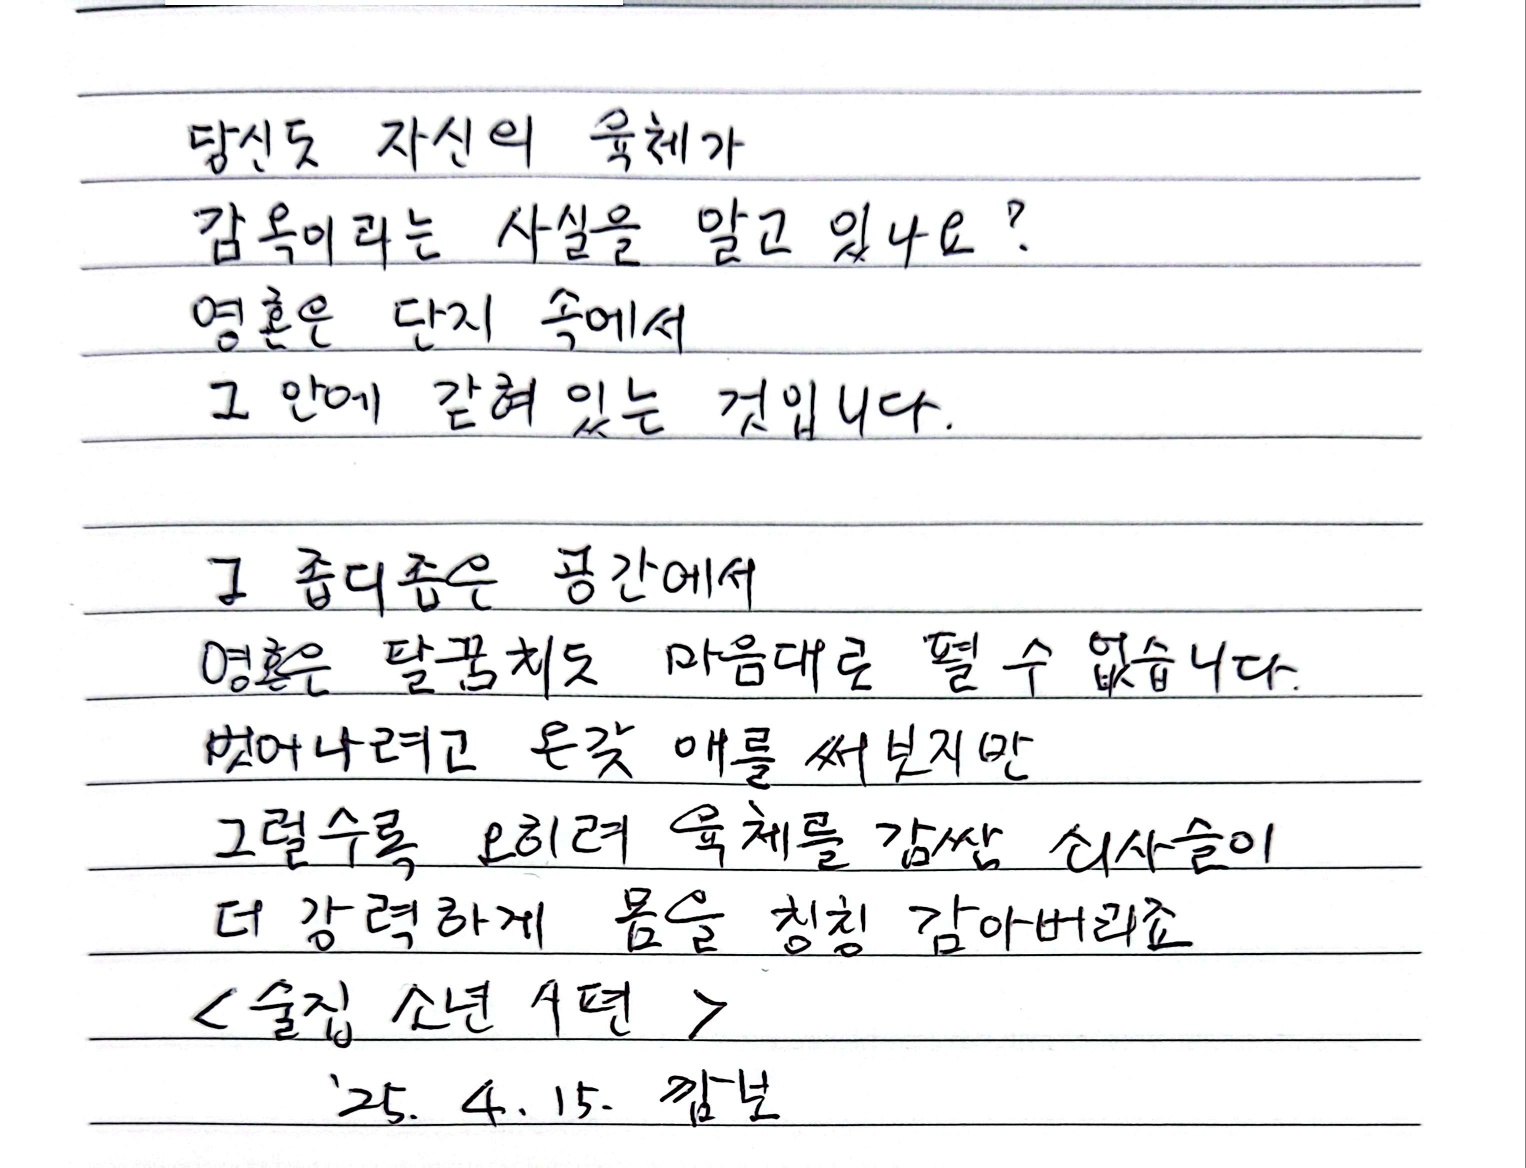 당신도 자신의 육체가
감옥이라는 사실을 알고 있나요?
영혼은 단지 속에서
그 안에 갇혀있는 것입니다.
그 좁디좁은 공간에서
영혼은 팔꿈치도 마음대로 펼 수 없습니다.
벗어나려고 온갖 애를 써보지만
그럴수록 오히려 육체를 감싼 쇠사슬이
더 강력하게 몸을 칭칭 감아버리죠
<술집 소년 A편>
'25. 4. 15. 깜보